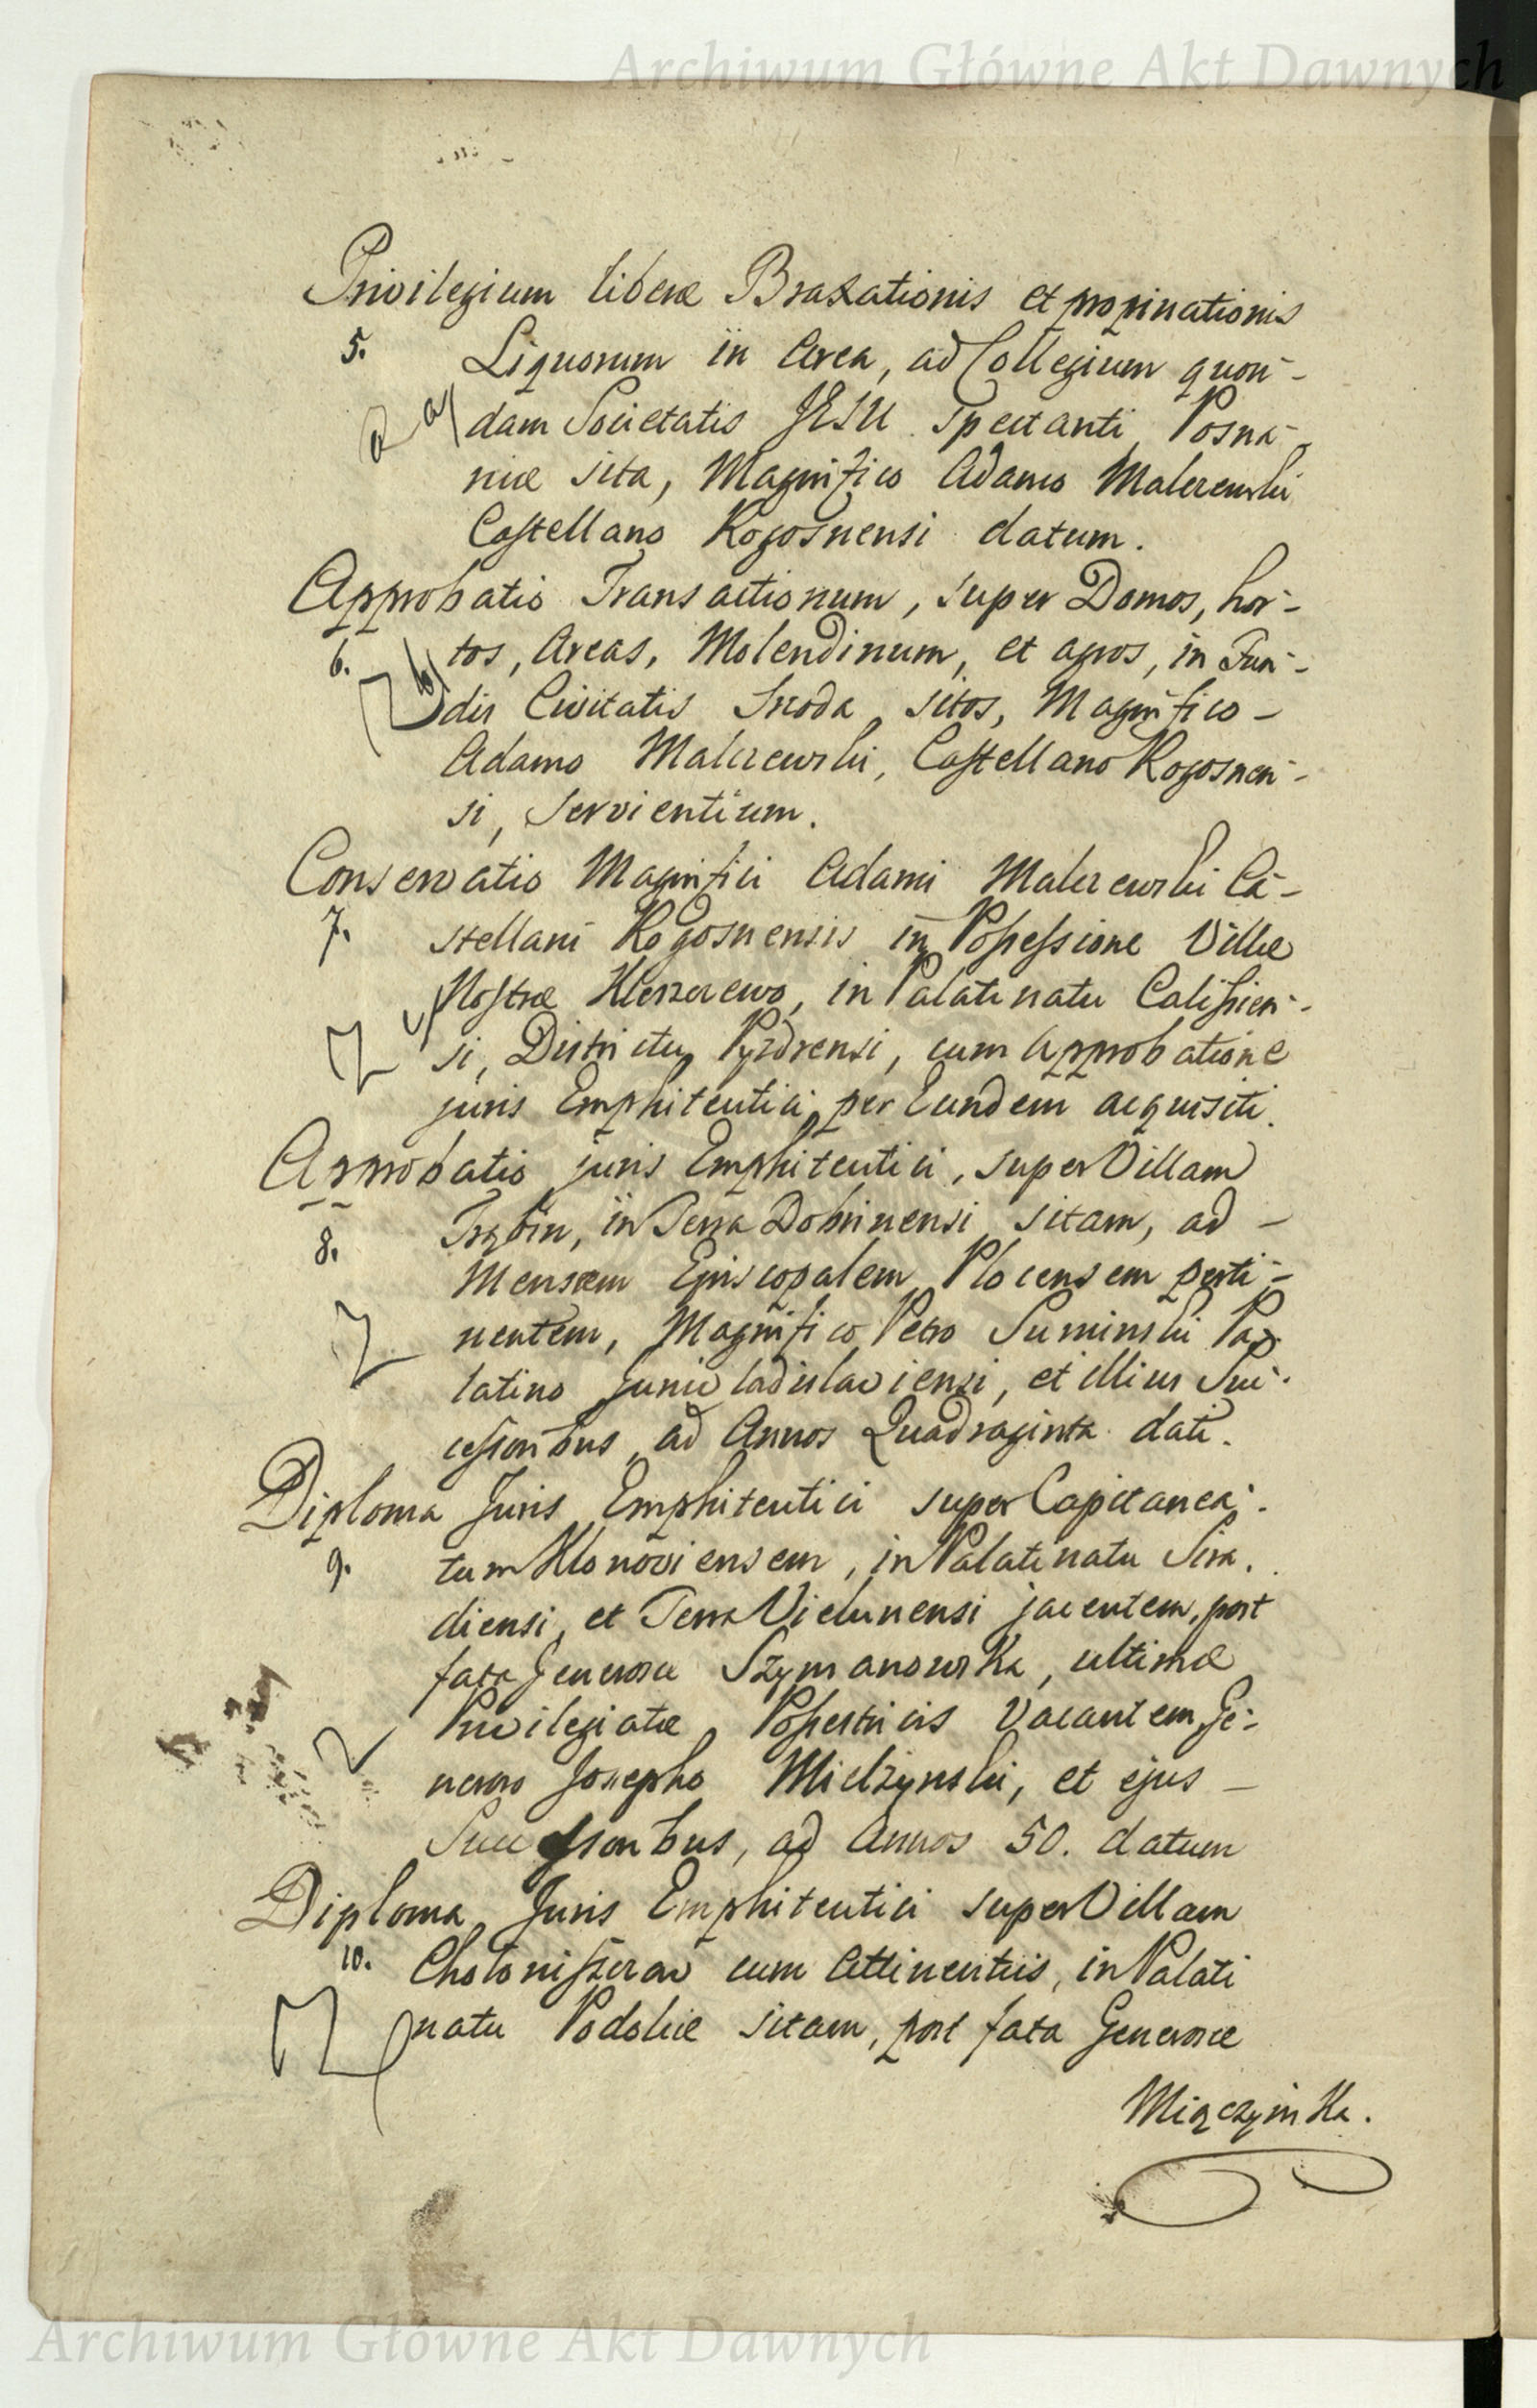 Archiwum Główne Akt Dawnych
Privilegium liberæ Braxationis et propinationis
5. Liquorum in Area, ad Collegium quon-
a) dam Societatis JESU spectanti, Posna-
niæ sita, Magnifico Adamo Malczewski
Castellano Rogosnensi datum.
Approbatio Transactionum, super Domos, hor-
6. tos, Areas, Molendinum, et agros, in Fun-
b) dis Civitatis Sroda sitos, Magnifico -
Adamo Malczewski, Castellano Rogosnen-
si, Servientium.
Conservatio Magnifici Adami Malczewski Ca-
7. stellani Rogosnensis in Possessione Villæ
c) Nostræ Kleszczewo, in Palatinatu Calissien-
si, Districtu Pyzdrensi, cum Approbatione
juris Emphiteutici per Eundem acquisiti.
Approbatio juris Emphiteutici, super Villam
8. Trąbin, in Terra Dobrinensi sitam, ad -
Mensam Episcopalem Plocensem perti-
nentem, Magnifico Petro Suminski Pa-
latino Juniwladislaviensi, et illius Suc-
cessoribus ad Annos Quadraginta dati.
Diploma Juris Emphiteutici super Capitanea-
9. tum Klonoviensem, in Palatinatu Sira-
diensi, et Terra Vielunensi jacentem, post
fata Generosæ Szymanowska, ultimæ
Privilegiatæ Possestricis Vacantem, Ge-
neroso Josepho Mielżynski, et ejus -
Successoribus, ad Annos 50. datum
Diploma Juris Emphiteutici super Villam
10. Choloniszczow cum Attinentiis, in Palati
natu Podoliæ sitam, post fata Generosæ
Miączyńska.
Archiwum Główne Akt Dawnych